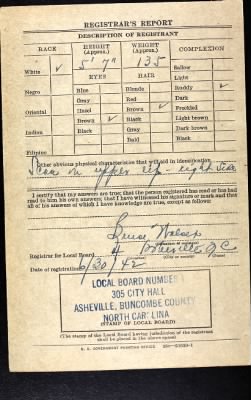 REGISTRAR'S REPORT
DESCRIPTION OF REGISTRANT
RACE HEIGHT (Approx.) WEIGHT (Approx.) COMPLEXION
White ✓ 5' 7" 135 Sallow
EYES HAIR Light
Negro Blue Blonde Ruddy ✓
Gray Red Dark
Oriental Hazel Brown ✓ Freckled
Brown ✓ Black Light brown
Indian Black Gray Dark brown
Bald Black
Filipino
Other obvious physical characteristics that will aid in identification
Scar on upper lip - right side
I certify that my answers are true; that the person registered has read or has had
read to him his own answers; that I have witnessed his signature or mark and that
all of his answers of which I have knowledge are true, except as follows:
Registrar for Local Board 4 N.C.
(Number) (City or county) (State)
Date of registration 6/30/42
LOCAL BOARD NUMBER
305 CITY HALL
ASHEVILLE, BUNCOMBE COUNTY
NORTH CAROLINA
(STAMP OF LOCAL BOARD)
(The stamp of the Local Board having jurisdiction of the registrant
shall be placed in the above space)
U. S. GOVERNMENT PRINTING OFFICE